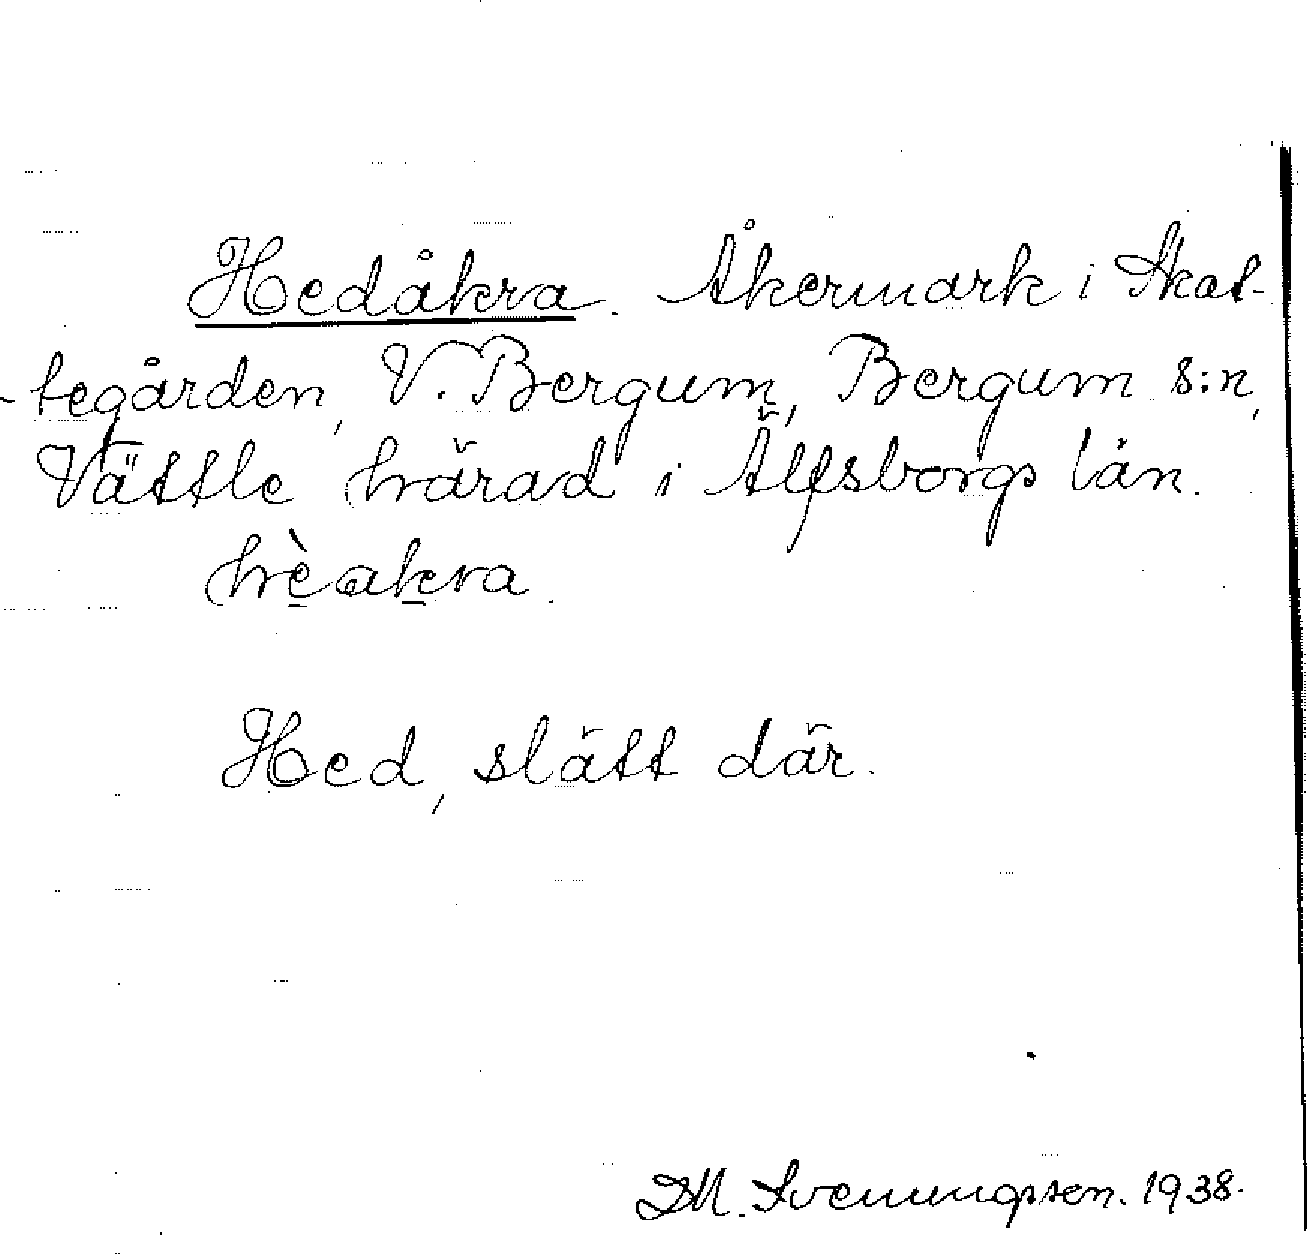 Hedåkra. Åkermark i Skat-
-tegården, V. Bergum, Bergum s:n,
Vättle härad i Älfsborgs län.
hèakra.
Hed, slätt där.
D. M. Svenungssen. 1938.